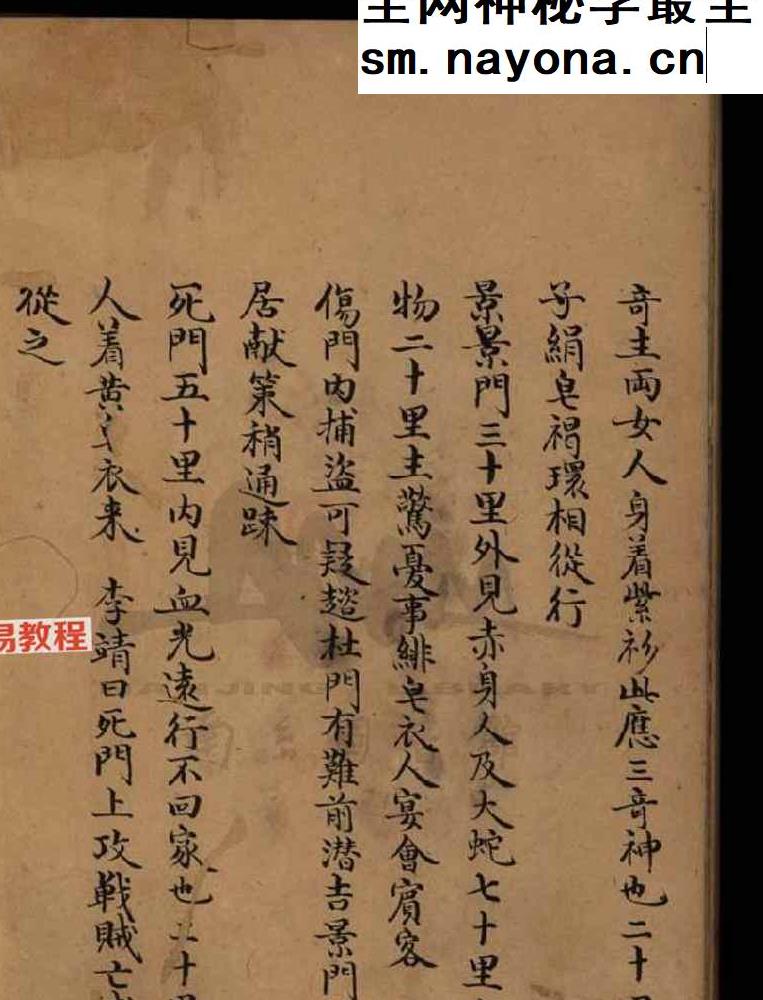 sm.nayona.cn
奇主兩女人身着紫衫此應三奇神也二十里
子絹皂褐環相從行
景景門三十里外見赤身人及大蛇七十里
物二十里主驚憂事緋皂衣人宴會賓客
傷門內捕盜可疑趂杜門有難前潜吉景門
居献策稍通踈
死門五十里內見血光遠行不回家也二十里
人着黄衣来 李靖曰死門上攻戰賊亡
從之
易教程